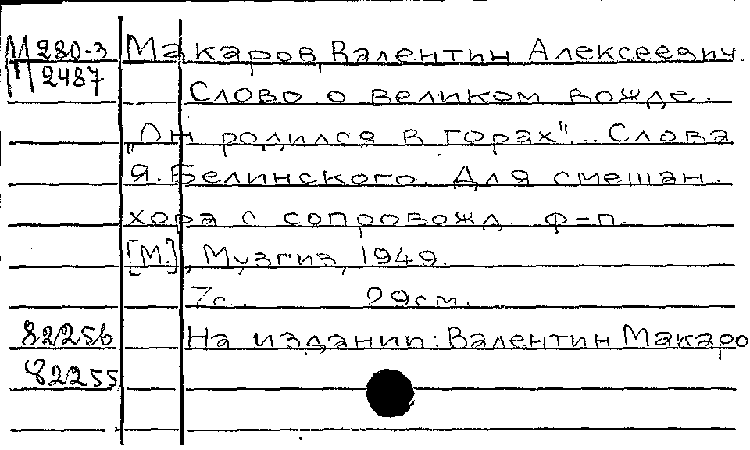 М 280-3 Макаров, Валентин Алексеевич.
М 2487 Слово о великом вожде.
„Он родился в горах"... Слова
Я. Белинского. Для смешан.
хора с сопровожд. ф-п.
[М.], Музгиз, 1949.
7с. 29см.
82256 На издании: Валентин Макаро
82255